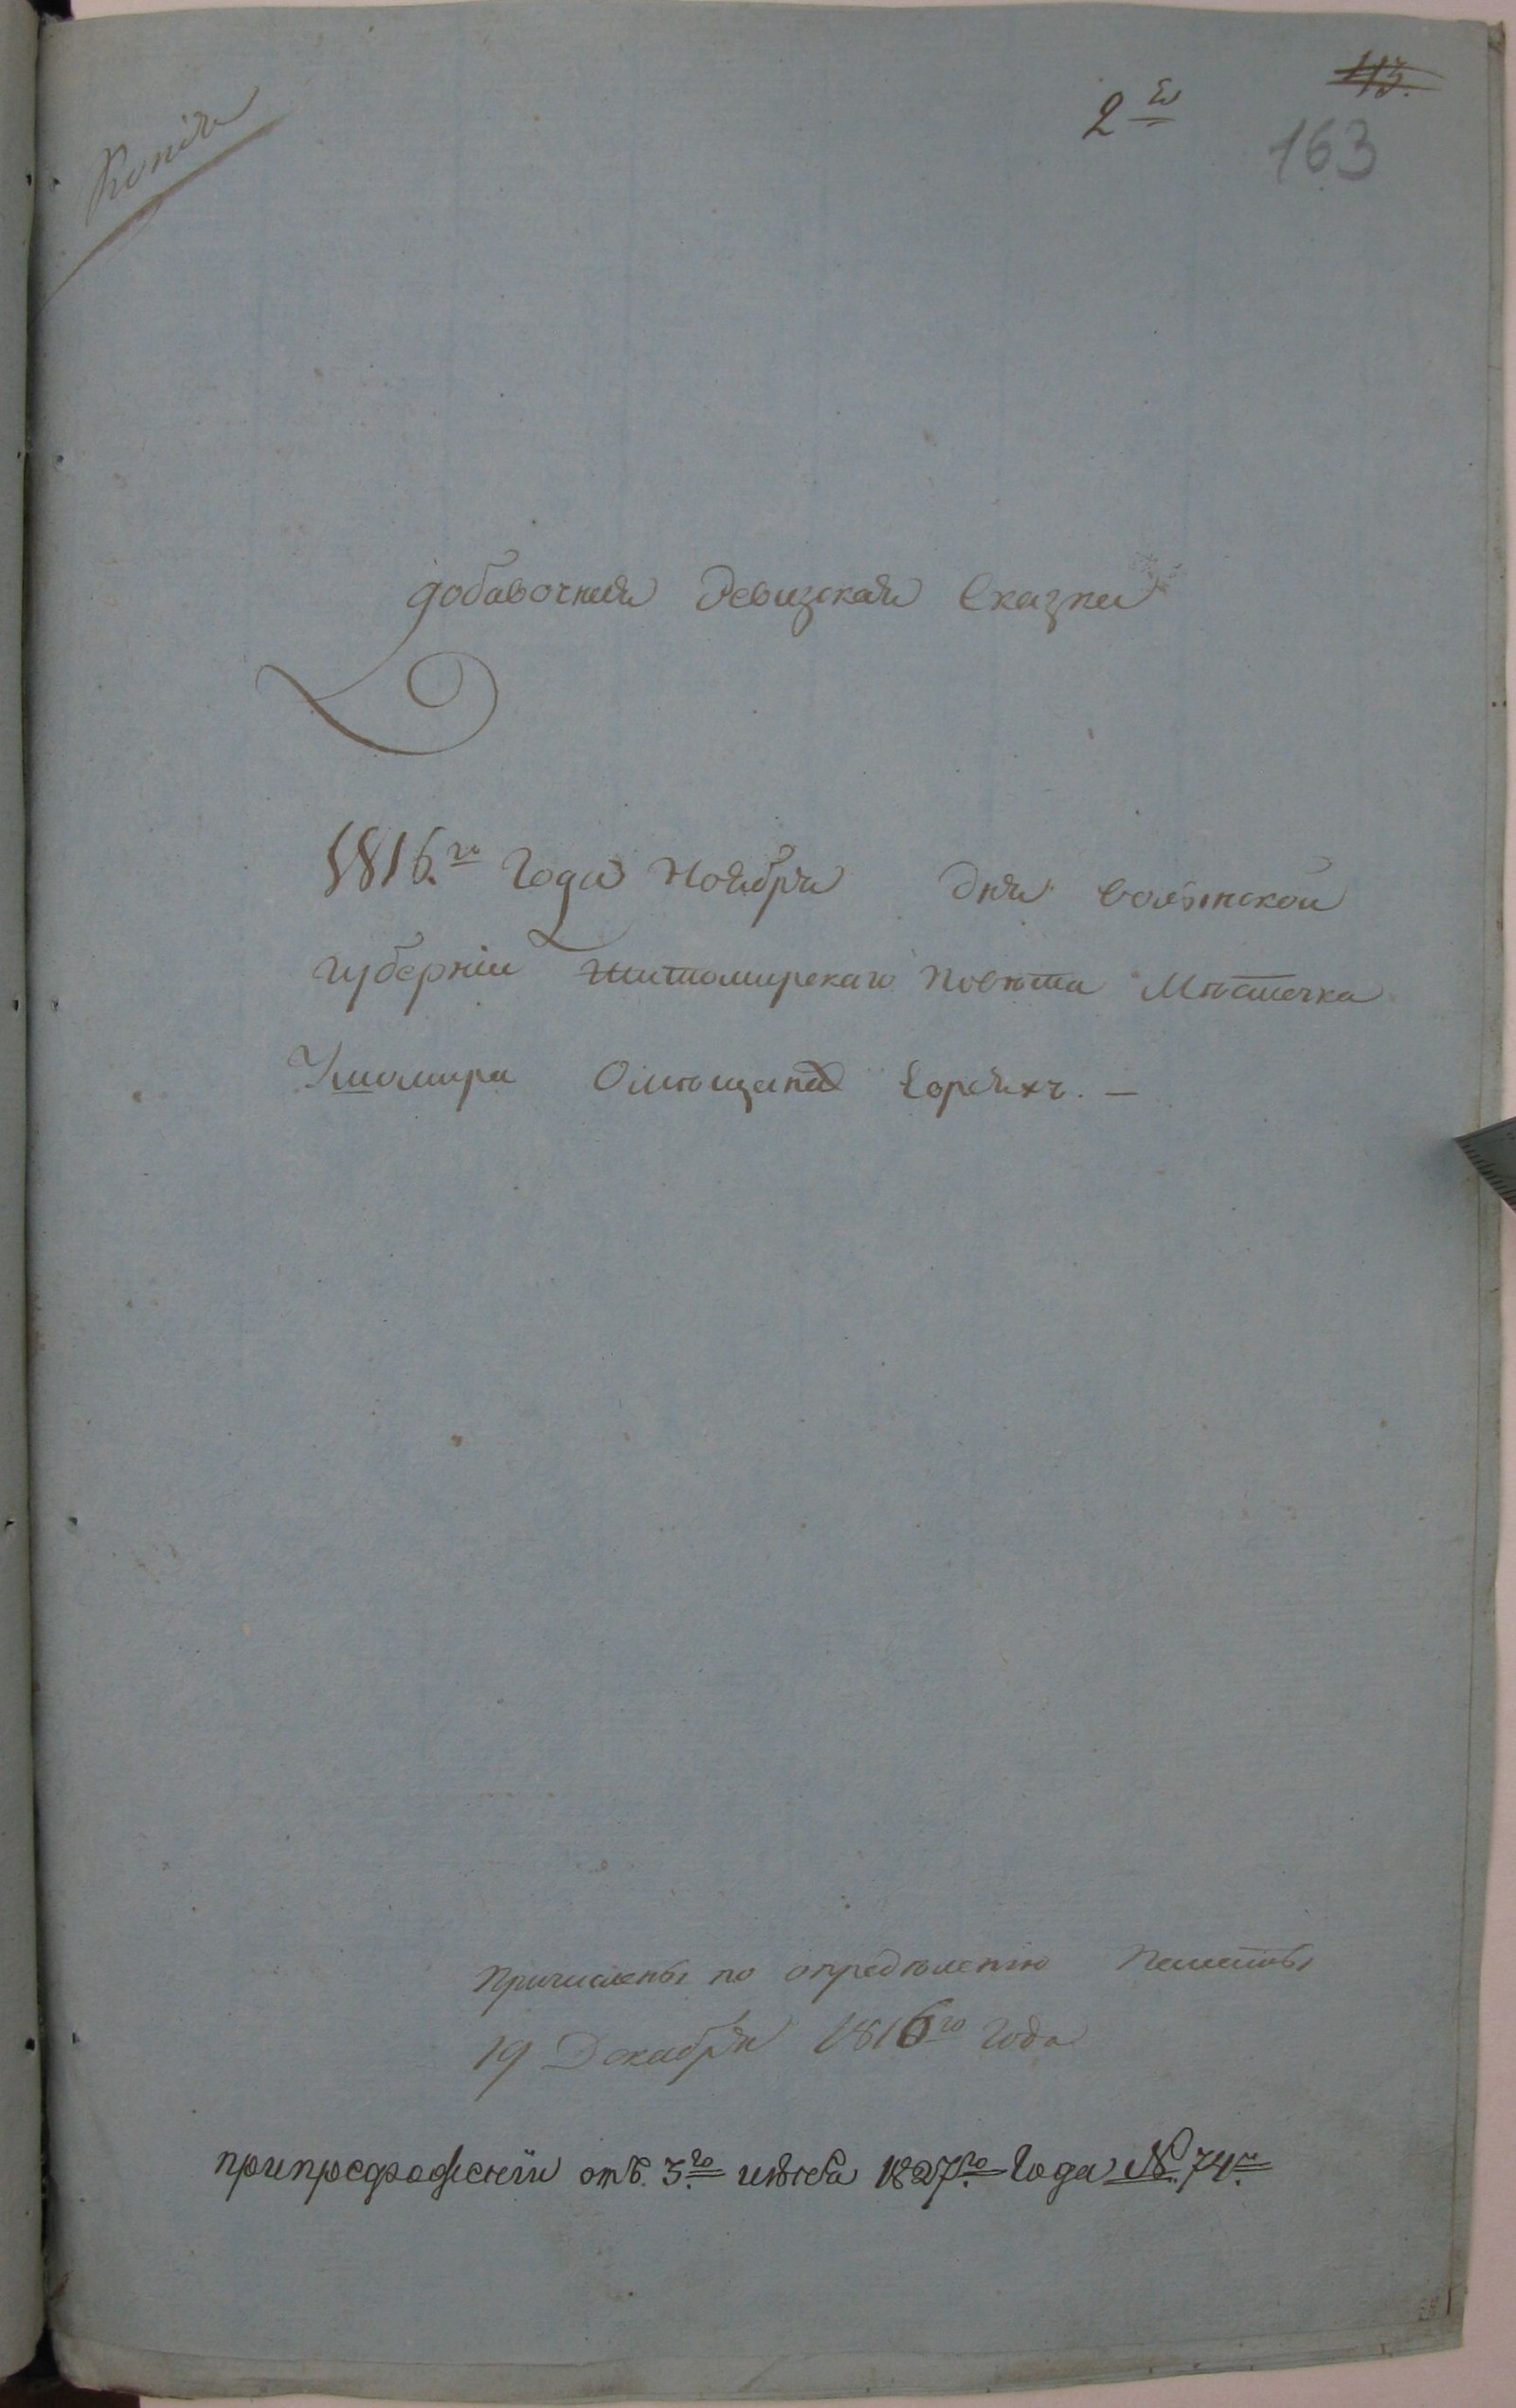 Копія
2го
113.
163
добавочная Ревизская Сказка
1816.го Года Ноября дня Волынской
губерніи Житомирскаго Повѣта Мѣстечка
Ушомира Омѣщанахъ Евреяхъ. —
Причислены по опредѣлению Палаты
19 Декабря 1816го Года
отъ 3.го 1827.го Года № 74.м